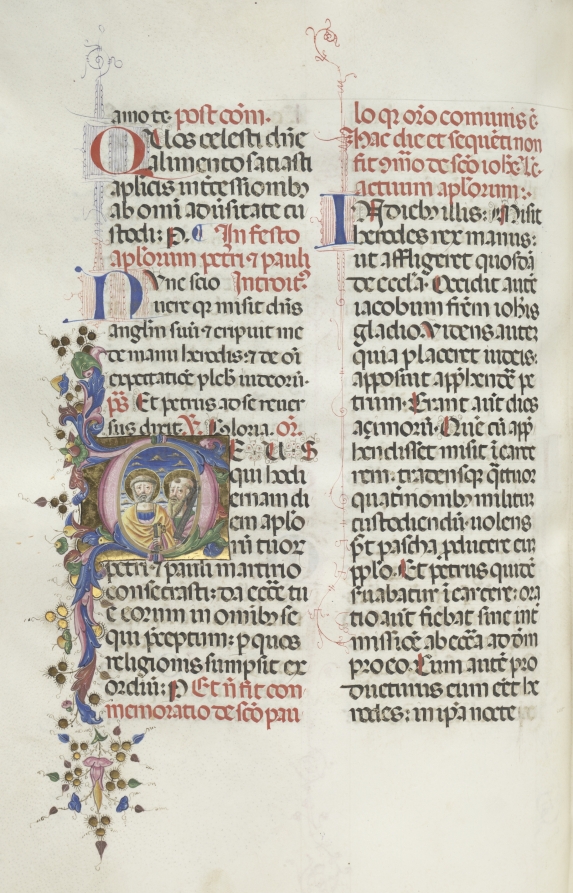 amo te post com̄.
Quos celesti dñe
alimento satiasti
aplicis int̃cessionibȝ
ab omi aduersitate cu
stodi: P. In festo
aplorum petri ⁊ pauli
Nunc scio Introitꝰ
uere qr misit dñs
angl̃m suũ ⁊ eripuit me
de manu herodis: ⁊ de oĩ
expectatiõe pleb̃ iudeorũ.
pš Et petrus ad se reuer
sus dixit. Gloria. or̃.
DEUS
qui hodi
ernam di
em aplo
rũ tuoꝝ
petri ⁊ pauli martirio
consecrasti: da eccẽ tu
e eorum in omibȝ se
qui p̃ceptum: p quos
religionis sumpsit ex
ordiũ: P Et ñ fit com
memoratio de sc̃o pau
lo qr or̃o comunis ẽ
Hac die et sequẽti non
fit 9mõ de sc̃o ioh̃e Le
actuum aplorum:.
In diebȝ illis: Misit
herodes rex manus:
ut affligeret quosdã
de eccl̃a. Occidit autẽ
iacobum fr̃em ioh̃is
gladio. Videns autez
quia placeret iudeis:
apposuit app̃hendẽ pe
trum. Erant aut̃ dies
açimorũ. Quẽ cũ app̃
hendisset misit ĩ carce
rem: tradensqȝ q̃ttuor
quat̃nionibȝ militũ
custodiendũ: uolens
p̃t pascha p̃ducere eum
pp̃lo. Et petrus quidẽ
s̃uabatur ĩ carcere: ora
tio aut̃ fiebat sine int̃
missiõe ab ecc̃a ad dm̃
pro eo. Cum autẽ pro
ducturus eum eẽt he
rodes: in ip̃a nocte